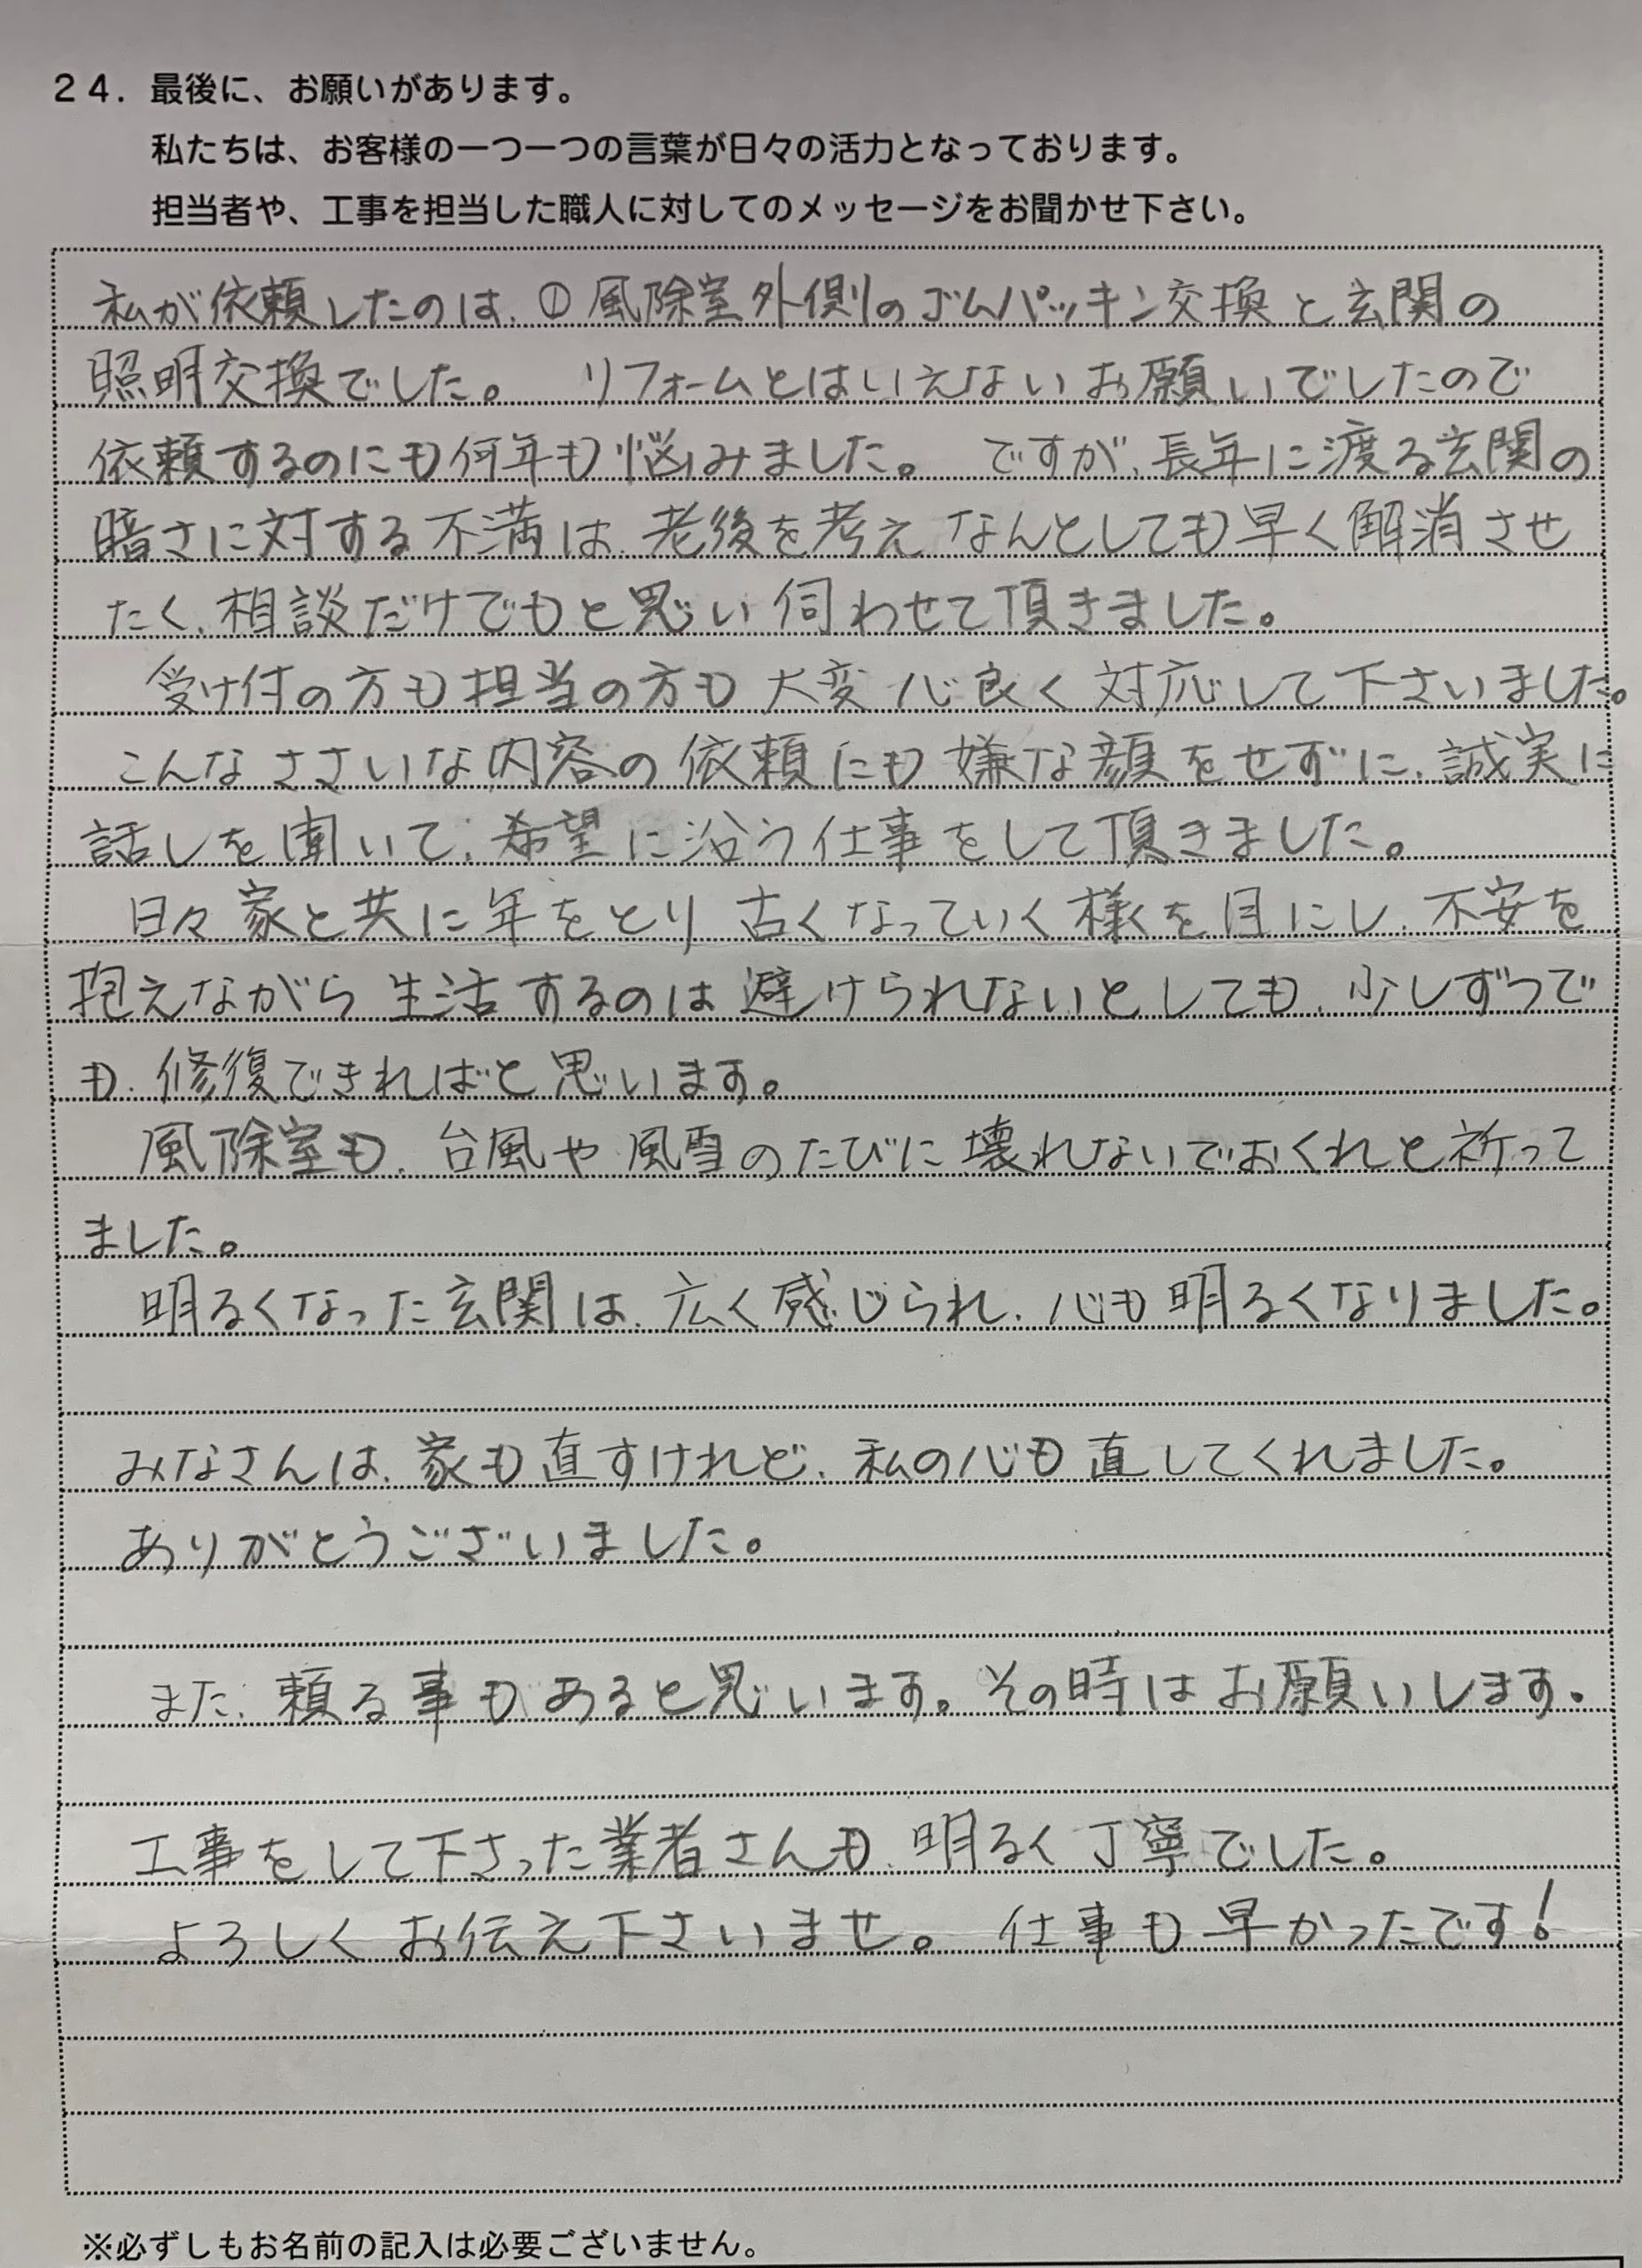 24. 最後に、お願いがあります。
私たちは、お客様の一つ一つの言葉が日々の活力となっております。
担当者や、工事を担当した職人に対してのメッセージをお聞かせ下さい。
私が依頼したのは、①風除室外側のゴムパッキン交換と玄関の
照明交換でした。 リフォームとはいえないお願いでしたので
依頼するのにも何年も悩みました。 ですが、長年に渡る玄関の
暗さに対する不満は、老後を考えなんとしても早く解消させ
たく、相談だけでもと思い伺わせて頂きました。
受け付の方も担当の方も大変心良く対応して下さいました。
こんなささいな内容の依頼にも嫌な顔をせずに、誠実に
話しを聞いて、希望に沿う仕事をして頂きました。
日々家と共に年をとり古くなっていく様を目にし、不安を
抱えながら生活するのは避けられないとしても、少しずつで
も、修復できればと思います。
風除室も、台風や風雪のたびに壊れないでおくれと祈って
ました。
明るくなった玄関は、広く感じられ、心も明るくなりました。
みなさんは、家も直すけれど、私の心も直してくれました。
ありがとうございました。
また、頼る事もあると思います。その時はお願いします。
工事をして下さった業者さんも、明るく丁寧でした。
よろしくお伝え下さいませ。 仕事も早かったです!
※必ずしもお名前の記入は必要ございません。